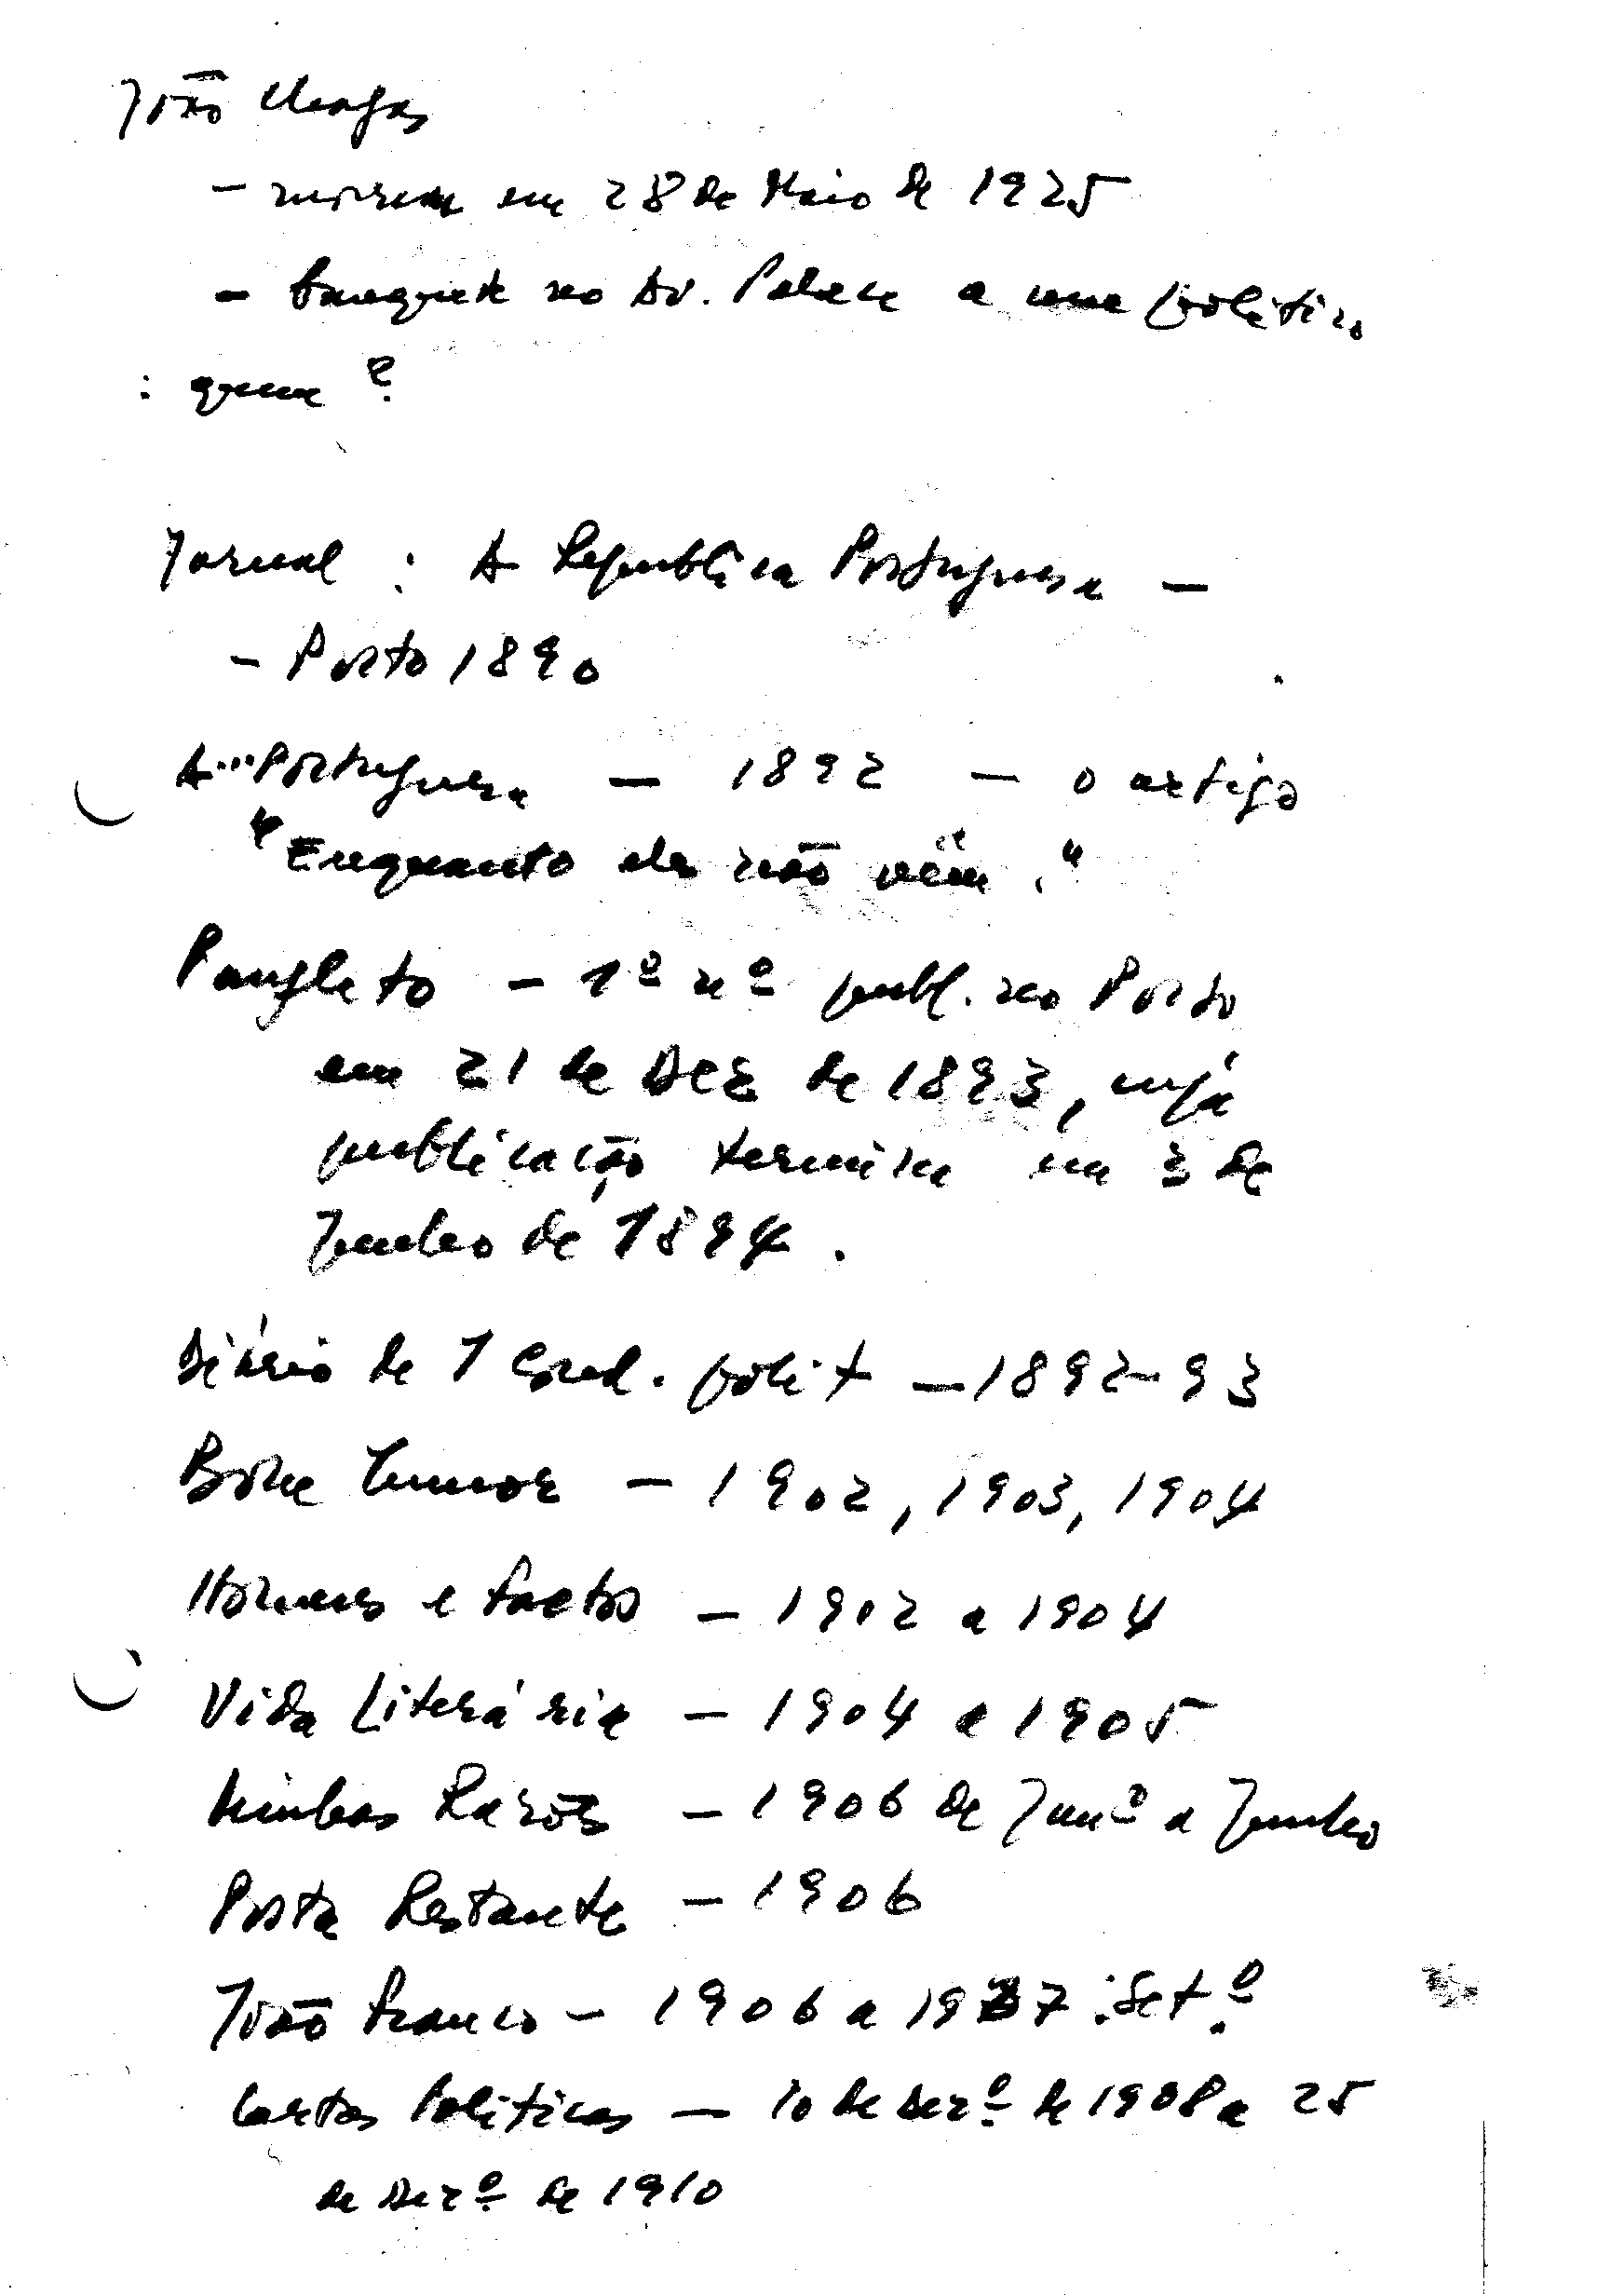 João Chagas
- morreu em 28 de Maio de 1925
- banquete no Av. Palace a um político
: quem?
Jornal : A Republica Portuguesa -
- Porto 1890
A Portuguesa - 1892 - o artigo
"Enquanto ela não vem."
Panfleto - 1º nº publ. no Porto
em 21 de Dez de 1893, cuja
publicação termina em 3 de
Junho de 1894.
Diário de 1 Cond. polit - 1892-93
Bom humor - 1902, 1903, 1904
Homens e factos - 1902 a 1904
Vida Literária - 1904 a 1905
Minhas Razões - 1906 de Janº a Junho
Posta Restante - 1906
João Franco - 1906 a 1907 : Setº
Cartas Politicas - 10 de Dezº de 1908 a 25
de Dezº de 1910